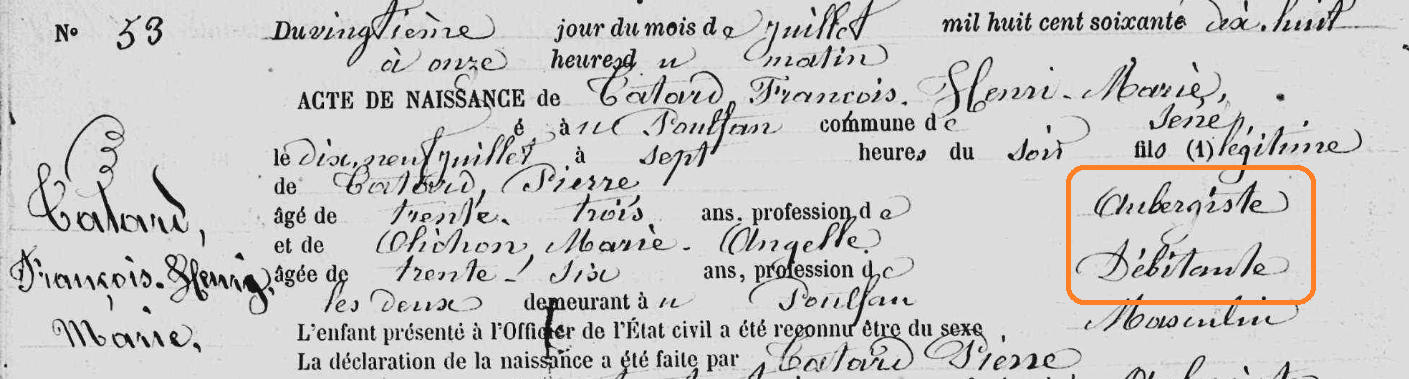 N° 53 Du vingtième jour du mois de juillet mil huit cent soixante dix huit
à onze heures du matin
ACTE DE NAISSANCE de Tatard, François, Henri-Marie,
é à u Poulfan commune de Sené,
le dix neuf juillet à sept heures du soir fils (1) légitime
de Tatard, Pierre
âgé de trente-trois ans, profession de Aubergiste
et de Olichon, Marie-Angelle
âgée de trente-six ans, profession de Débitante
les deux demeurant à u Poulfan
L'enfant présenté à l'Officier de l'État civil a été reconnu être du sexe Masculin
La déclaration de la naissance a été faite par Tatard Pierre
Tatard,
François-Henri
Marie,